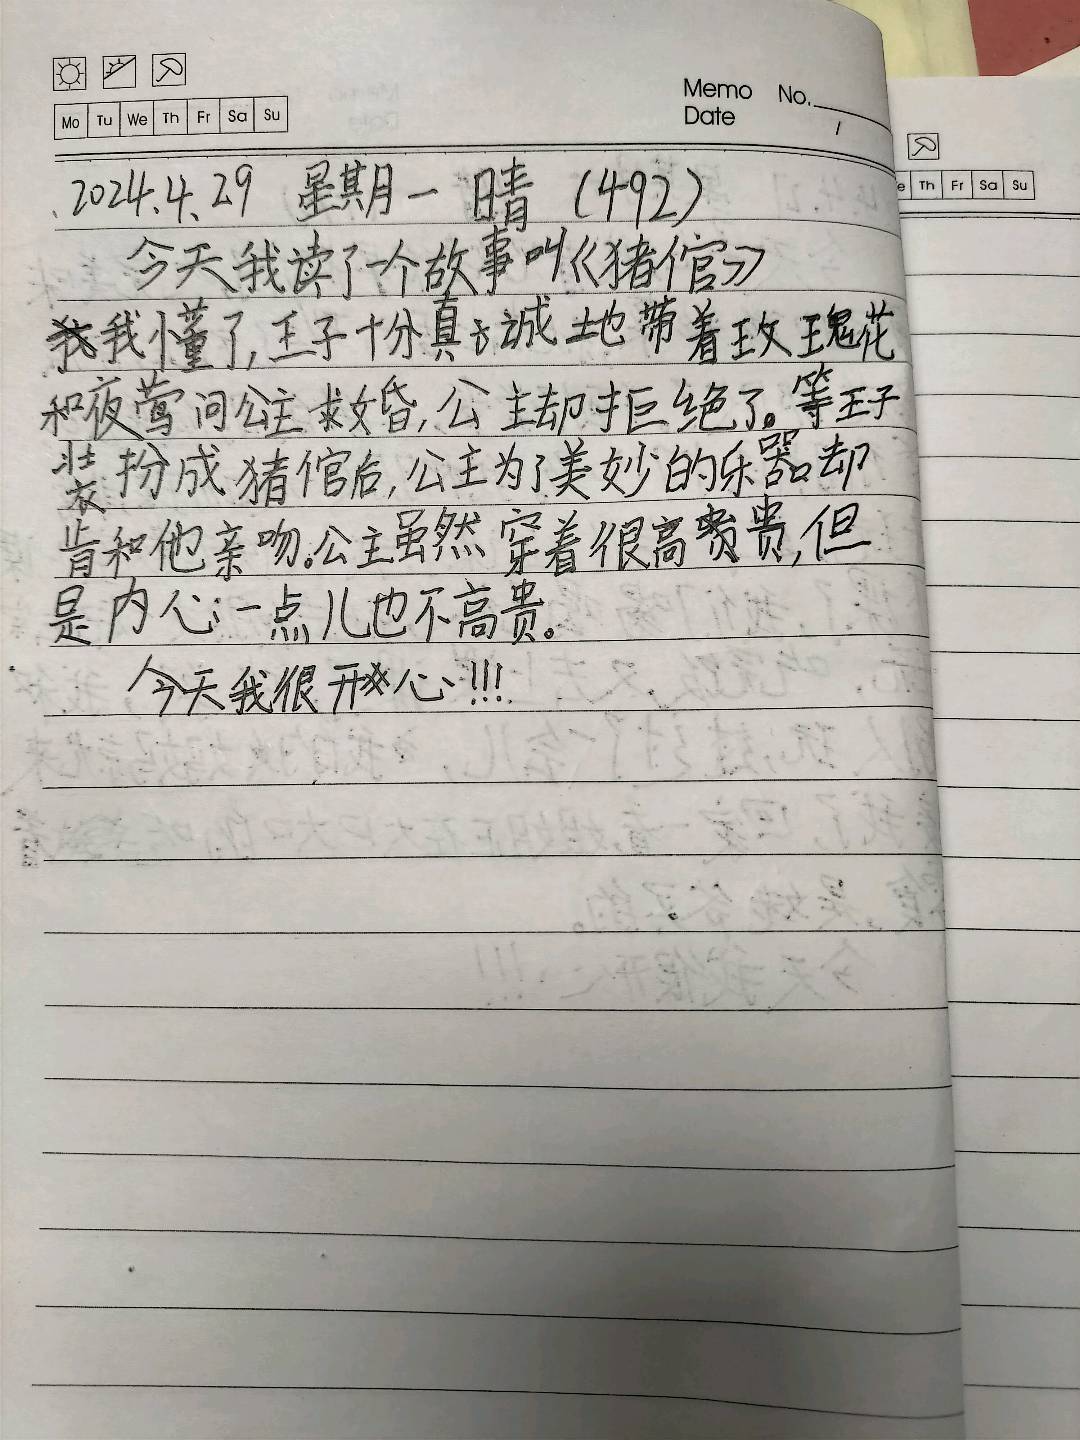 Memo No.
Date
Mo Tu We Th Fr Sa Su
2024.4.29 星期一 晴 (492)
今天我读了一个故事叫《猪倌》
我懂了,王子十分真诚地带着玫瑰花
和夜莺问公主求婚,公主却拒绝了。等王子
装扮成猪倌后,公主为了美妙的乐器却
肯和他亲吻。公主虽然穿着很高贵,但
是内心一点儿也不高贵。
今天我很开心!!!
e Th Fr Sa Su